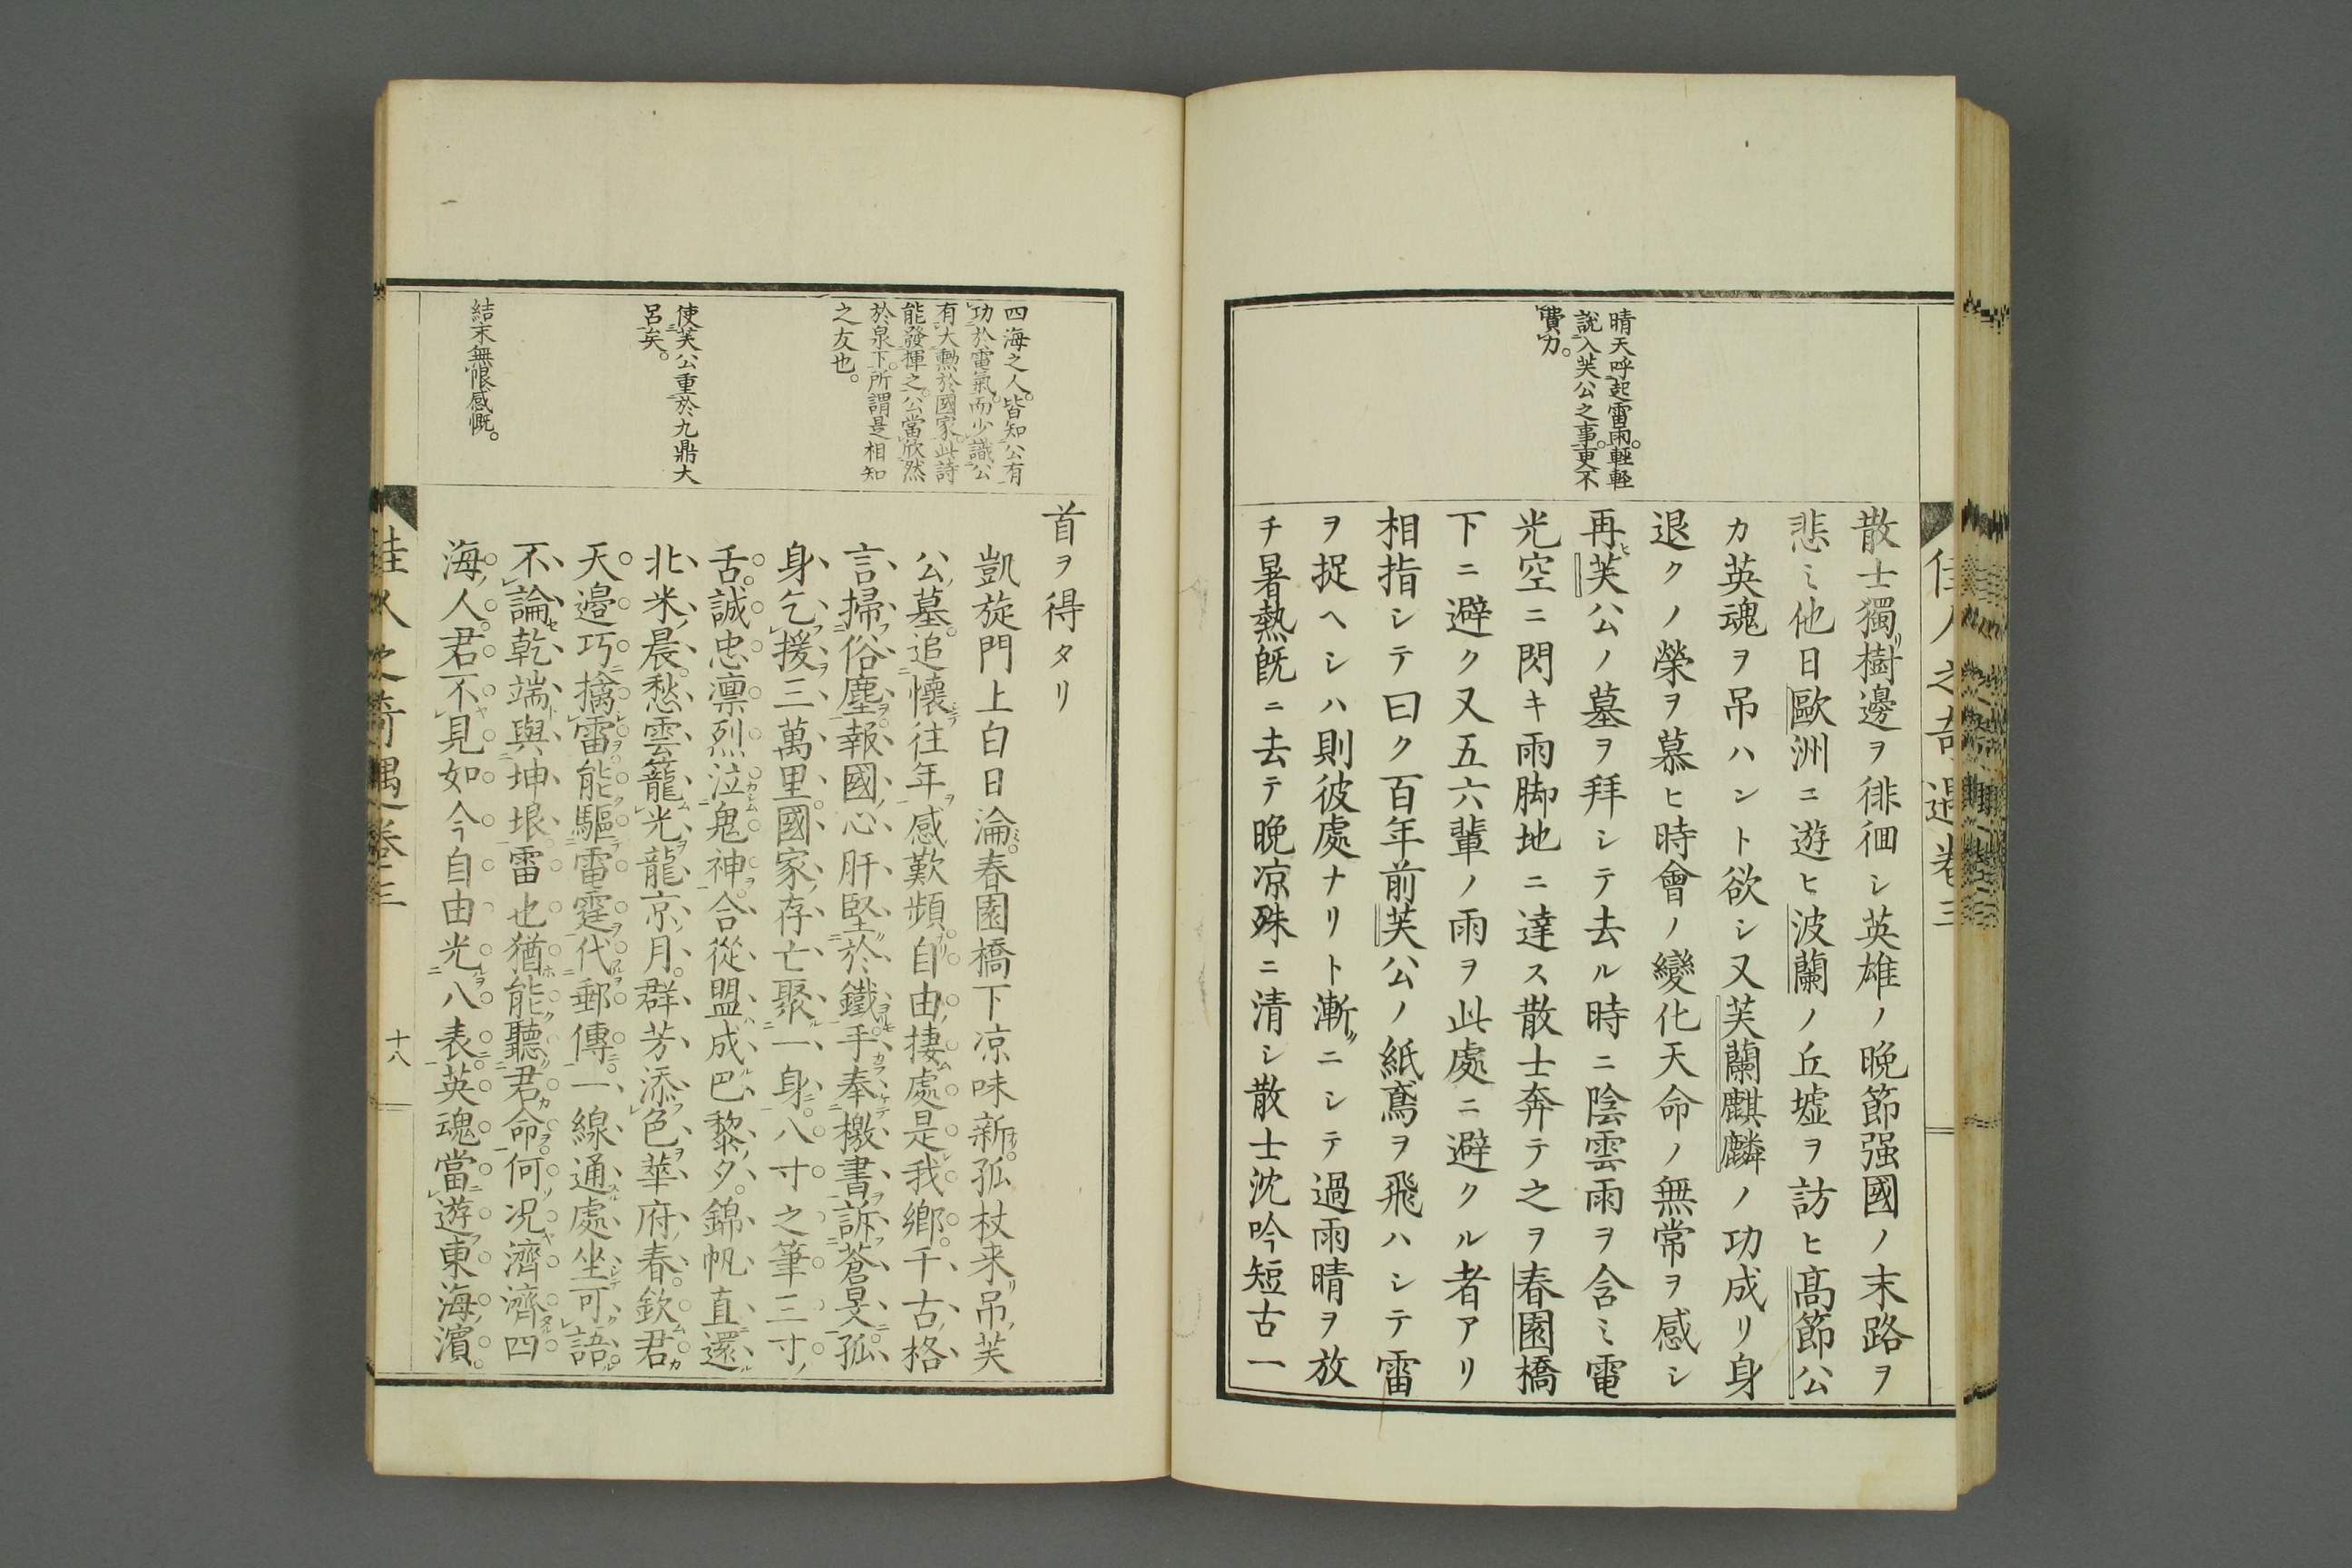 佳人之奇遇卷三
晴天呼起雷雨。輕輕
說入芙公之事。更不
費力。
散士獨リ樹邊ヲ徘徊シ英雄ノ晩節强國ノ末路ヲ
悲ミ他日歐洲ニ遊ヒ波蘭ノ丘墟ヲ訪ヒ高節公
カ英魂ヲ吊ハント欲シ又芙蘭麒麟ノ功成リ身
退クノ榮ヲ慕ヒ時會ノ變化天命ノ無常ヲ感シ
再ヒ芙公ノ墓ヲ拜シテ去ル時ニ陰雲雨ヲ含ミ電
光空ニ閃キ雨脚地ニ達ス散士奔テ之ヲ春園橋
下ニ避ク又五六輩ノ雨ヲ此處ニ避クル者アリ
相指シテ曰ク百年前芙公ノ紙鳶ヲ飛ハシテ雷
ヲ捉ヘシハ則彼處ナリト漸ニシテ過雨晴ヲ放
チ暑熱既ニ去テ晩凉殊ニ清シ散士沈吟短古一
四海之人。皆知公有
功於電氣。而少識公
有大勲於國家。此詩
能發揮之。公當欣然
於泉下。所謂是相知
之友也。
使芙公重於九鼎大
呂矣。
結末無限感慨。
首ヲ得タリ
凱旋門上白日淪。春園橋下凉味新。孤杖来吊芙
公墓。追懷往年感歎頻。自由棲處是我鄉。千古格
言掃俗塵。報國心肝堅於鐵。手奉檄書訴蒼旻。孤
身乞援三萬里。國家存亡聚一身。八寸之筆三寸
舌。誠忠凛烈泣鬼神。合從盟成巴黎夕。錦帆直還
北米晨。愁雲籠光龍京月。群芳添色華府春。欽君
天邉巧擒雷。能驅雷霆代郵傳。一線通處坐可語。
不論乾端與坤垠。雷也猶能聽君命。何况濟濟四
海人。君不見如今自由光八表。英魂當遊東海濱。
佳人之奇遇卷三
十八